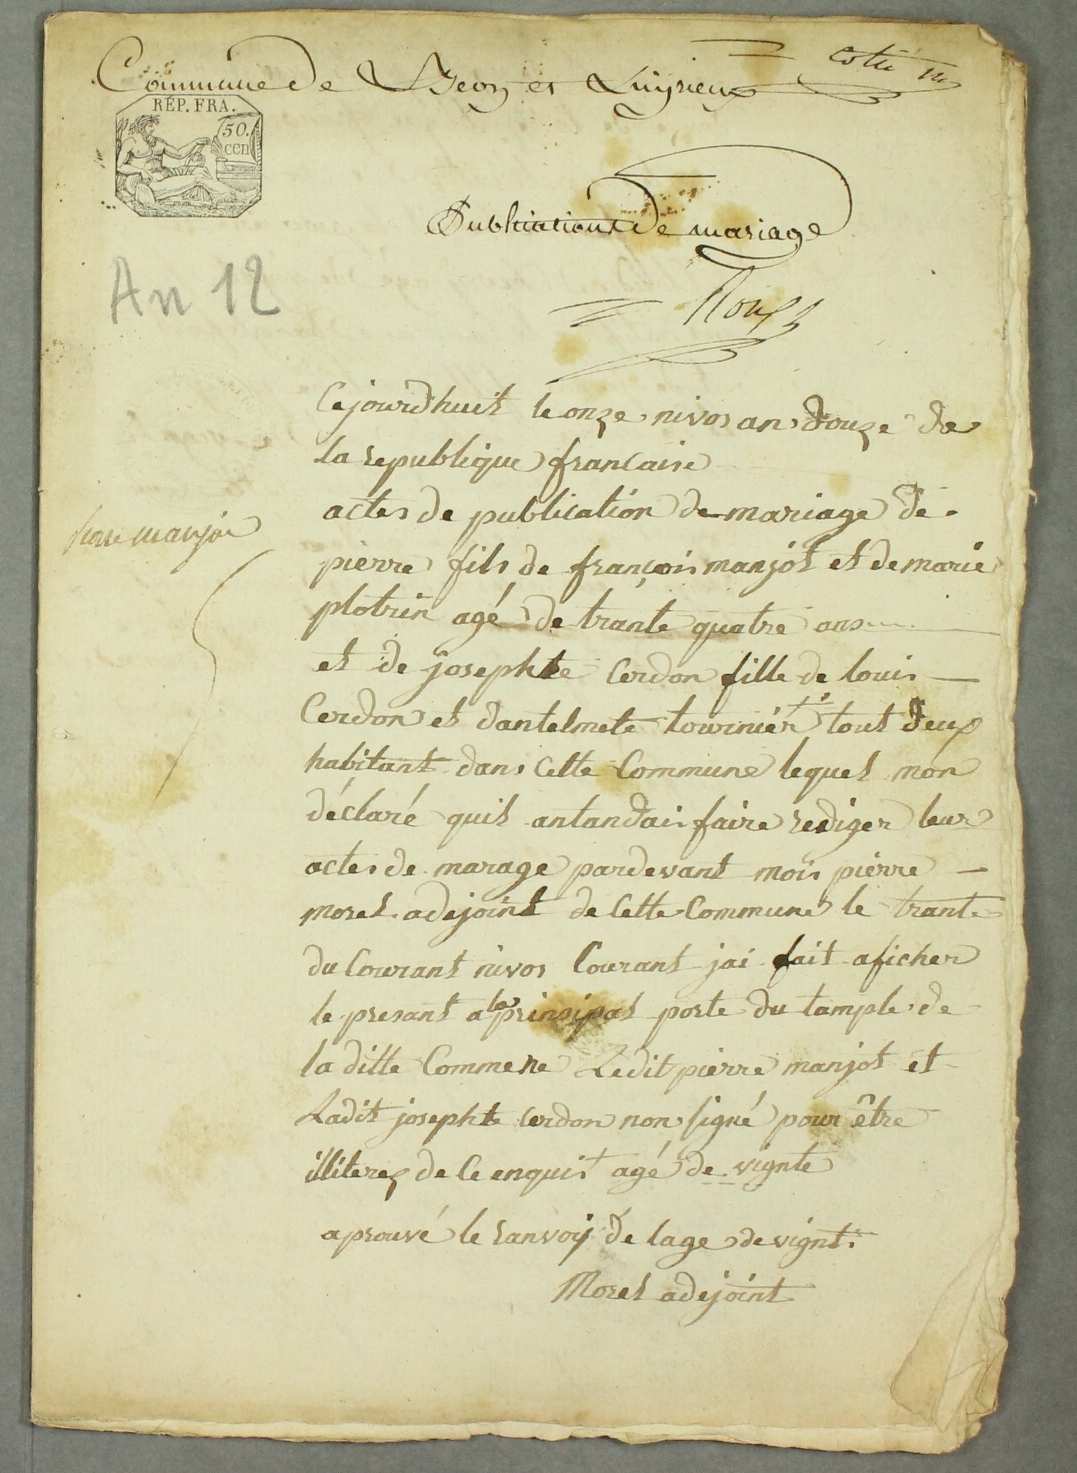 Commune de Beon et Luyrieux
REP. FRA.
50.
cen
An 12
Publications De mariage
Roux
Cejourdhuit le onze nivos an Douze de
la republique francaise
actes de publication de mariage de
pierre manjot
pierre fils de françois manjot et de marie
plotrin agé de trante quatre ans
et de josephte Cerdon fille de louis
Cerdon et dantelmete tournier tout deux
habitant dans Cette Commune lequel mon
déclaré quil antandais faire rediger leur
actes de marage pardevant mois pierre
morel adejoint de Cette Commune le trante
du Courant nivos Courant jai fait aficher
le presant a la prinsipal porte du tample de
la ditte Commene Ledit pierre manjot et
Ladit josephte Cerdon non signé pour être
illiterez de Ce enquis agé de vignte
aprouvé le ranvoij de lage de vignt.
Morel adejoint